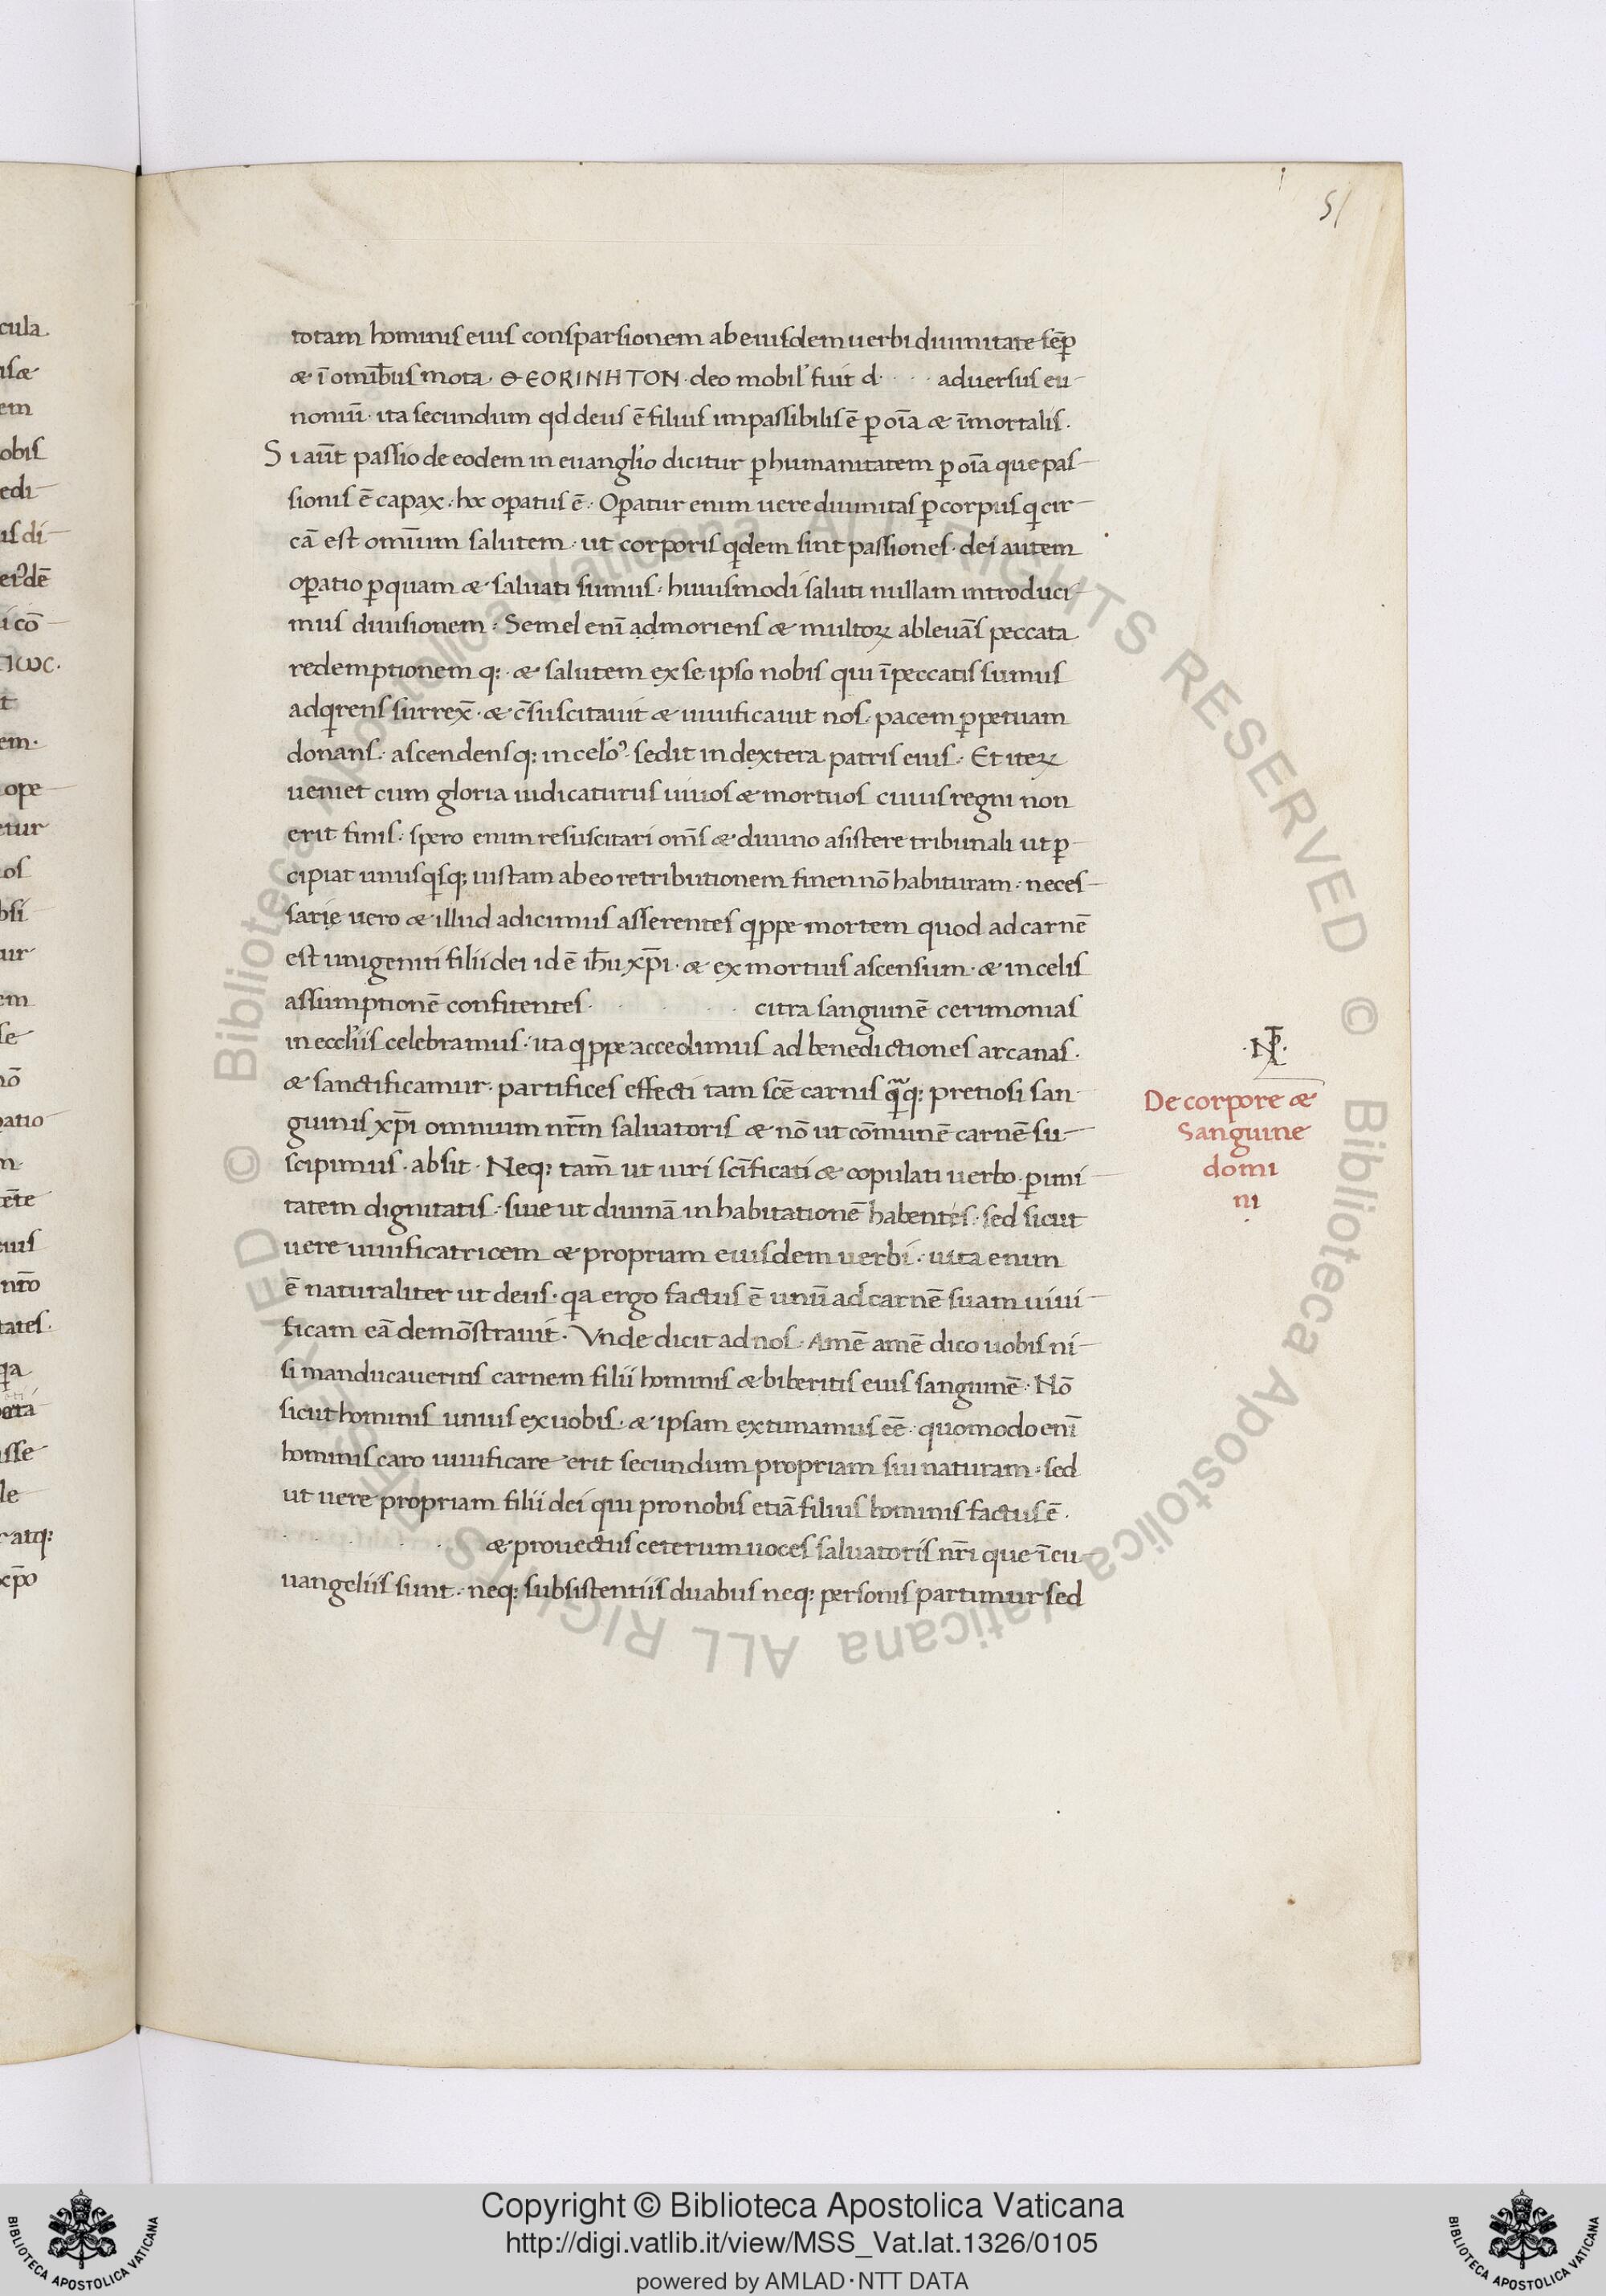 51
totam hominis eius consparsionem ab eiusdem uerbi diuinitate sēp̄
æ ī omib̄us mota· ΘEORINHTON· deo mobil' fuit d· aduersus eu-
nomiū· ita secundum qd deus ē filius impassibilis ē p̄ oīa æ īmortalis·
Si aūt passio de eodem in euangl'io dicitur p̄ humanitatem p̄ oīa que pas-
sionis ē capax· hoc op̄atus ē· Op̄atur enim uere diuinitas p̄ corpus q cir-
cā est omīum salutem· ut corporis qdem sint passiones· dei autem
op̄atio p̄ quam æ saluati sumus· huiusmodi saluti nullam introduci-
mus diuisionem· Semel enī admoriens æ multoꝝ ableuās peccata
redemptionem q: æ salutem ex se ipso nobis qui ī peccatis sumus
adqrens surrex̄· æ c̄suscitauit æ uiuificauit nos· pacem p̄petuam
donans· ascendensq: in celo· sedit in dextera patris eius· Et iteꝝ
ueniet cum gloria iudicaturus uiuos æ mortuos cuius regni non
erit finis· spero enim resuscitari om̄s æ diuino asistere tribunali ut p̄-
cipiat unusqsq: iustam ab eo retributionem finen nō habituram· neces-
sarię uero æ illud adicimus asserentes qppe mortem quod ad carnē
est unigeniti filii dei id ē ih̄u xp̄i· æ ex mortuis ascensum· æ in celis
assumptionē confitentes· citra sanguinē cerimonias
in eccl'iis celebramus· ita qppe accedimus ad benedictiones arcanas·
æ sanctificamur· partifices effecti tam scē carnis qq: pretiosi san-
guinis xp̄i omnium nr̄m saluatoris æ nō ut cōmunē carnē su-
scipimus· absit· Neq: tam̄ ut uiri scīficati æ copulati uerbo p̄ uni-
tatem dignitatis· siue ut diuinā inhabitationē habentes· sed sicut
uere uiuificatricem æ propriam eiusdem uerbi· uita enim
ē naturaliter ut deus· qa ergo factus ē unū ad carnē suam uiui-
ficam eā demōstrauit· Vnde dicit ad nos· Amē amē dico uobis ni-
si manducaueritis carnem filii hominis æ biberitis eius sanguinē· Nō
sicut hominis unius ex uobis· æ ipsam extimamus eē· quomodo enī
hominis caro uiuificare erit secundum propriam sui naturam· sed
ut uere propriam filii dei qui pro nobis etiā filius hominis factus ē·
æ prouectus ceterum uoces saluatoris nr̄i que ī eu-
uangeliis sunt· neq: subsistentiis duabus neq: personis partimur sed
De corpore æ
Sanguine
domi
ni
cula
isæ
em
obis
edi-
us di-
i cō-
em·
ope-
etur
os
bsi
ur
em
se
nō
patio
eius
nr̄o
tates·
qa
isse
le
ratq:
xp̄o
© Biblioteca Apostolica Vaticana ALL RIGHTS RESERVED
© Biblioteca Apostolica Vaticana ALL RIGHTS RESERVED
Copyright © Biblioteca Apostolica Vaticana
http://digi.vatlib.it/view/MSS_Vat.lat.1326/0105
powered by AMLAD·NTT DATA
BIBLIOTECA APOSTOLICA VATICANA
BIBLIOTECA APOSTOLICA VATICANA